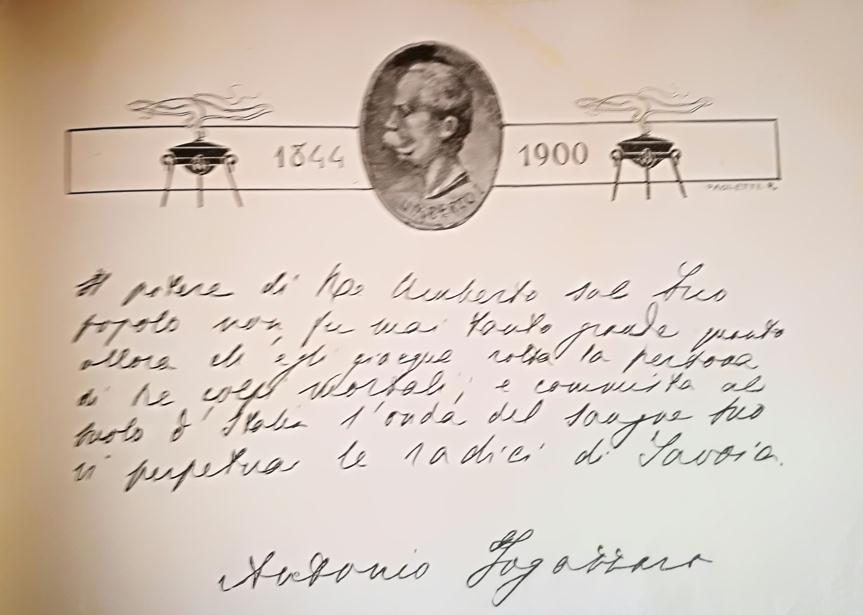 1844 1900
UMBERTO I
Il potere di Re Umberto sul Suo
popolo non fu mai tanto grande quanto
allora ch'egli giacque rotta la persona
di tre colpi mortali; e commista al
suolo d'Italia l'onda del sangue suo
vi perpetua le radici di Savoia.
Antonio Fogazzaro